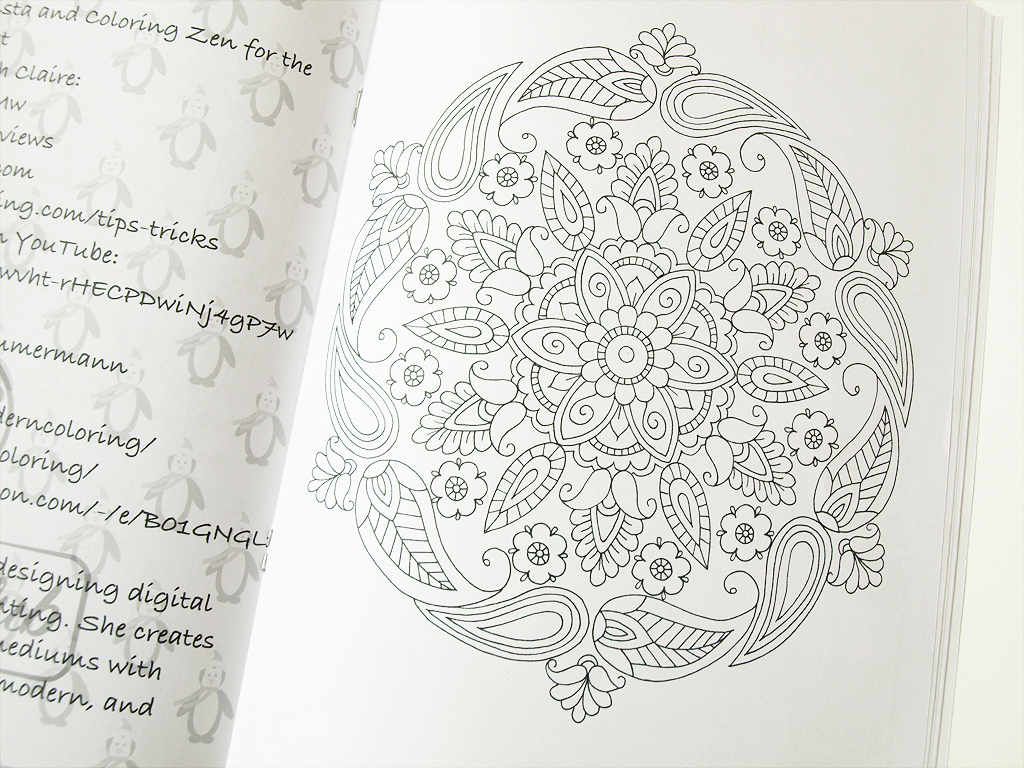 sta and Coloring Zen for the
t
h Claire:
views
om
ing.com/tips-tricks
YouTube:
wvht-rHECPDwiNj4gP7w
mmermann
derncoloring/
oloring/
on.com/-/e/B01GNGL
designing digital
ting. She creates
mediums with
modern, and